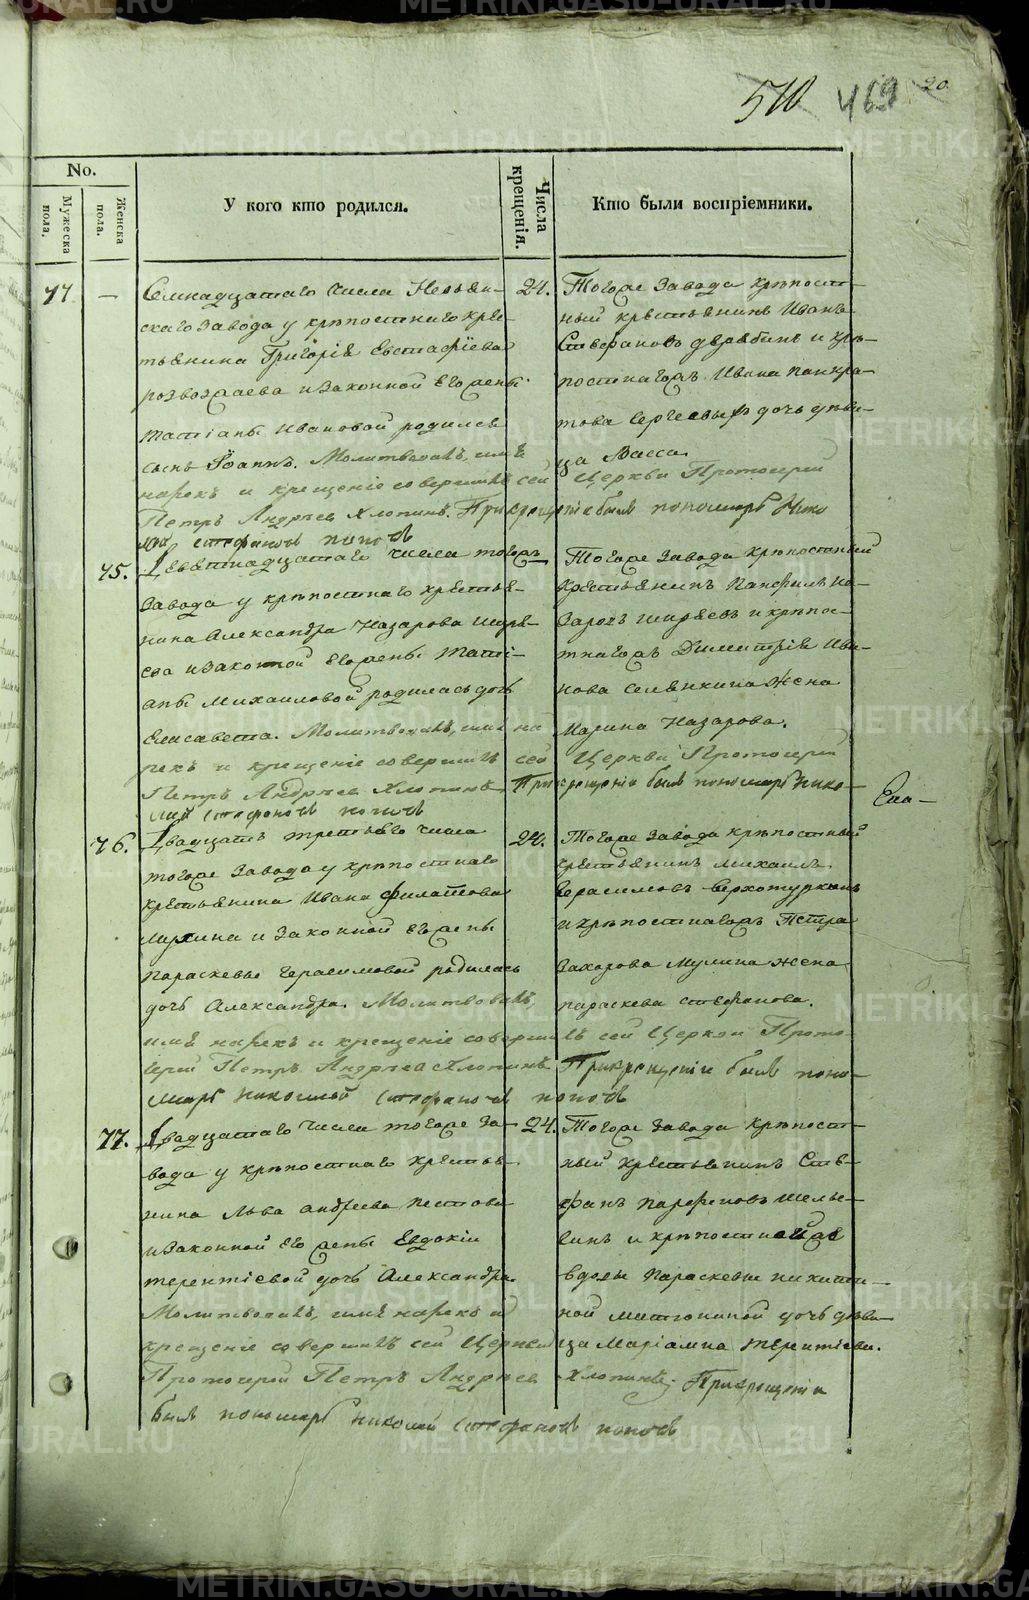 510 469 20
No.
Мужеска пола.
Женска пола.
У кого кто родился.
Числа крещенія.
Кто были воспріемники.
77. —
Семнадцатаго числа Невьян-
скаго Завода у крѣпостнаго кре-
стьянина Григорія Евстафіева
и законной его жены
татіаны Ивановой родился
сынъ Іоаннъ. Молитвовалъ, имя
нарекъ и крещеніе совершилъ сей Церкви Протоіерей
Петръ Андреевъ Хлопинъ. При крещеніи былъ пономарь Нико
лай стефановъ поповъ
24. Тогоже Завода крѣпост-
ный крестьянинъ Иванъ
Стефановъ дерябинъ и крѣ-
постнагожъ Ивана панкра-
това Сергеевыхъ дочь дѣви-
ца Васса
75. Девятнадцатаго числа тогожъ
Завода у крѣпостнаго крестья-
нина Александра Назарова Ширя-
ева и законной его жены Тати-
аны Михаиловой родилась дочь
Елисавета. Молитвовалъ, имя на
рекъ и крещеніе совершилъ сей Церкви Протоіерей
Петръ Андреевъ Хлопинъ При крещеніи былъ пономарь Нико-
лай стефановъ поповъ
Тогоже Завода крѣпостный
крестьянинъ Панфилъ на-
заровъ ширяевъ и крѣпос-
тнагожъ Димитрія Ива-
нова селянкина жена
Марина Назарова.
Ела-
76. Двадцать третьяго числа
тогоже Завода у крѣпостнаго
крестьянина Ивана филатова
и законной его жены
параскевы Герасимовой родилась
дочь Александра. Молитвовалъ,
имя нарекъ и крещеніе совершилъ сей Церкви Прото-
іерей Петръ Андреевъ Хлопинъ При крещеніи былъ поно-
марь Николай стефановъ поповъ
24. Тогоже Завода крѣпостный
крестьянинъ михаилъ
Герасимовъ верхотурцовъ
и крѣпостнагожъ Петра
Захарова Мулина жена
параскева стефанова.
77. Двадцатаго числа тогоже За-
вода у крѣпостнаго крестья-
нина Льва андреева пестова
и законной его жены Евдокіи
терентіевой дочь Александра.
Молитвовалъ, имя нарекъ и
крещеніе совершилъ сей Церкви
Протоіерей Петръ Андреевъ Хлопинъ. При крещеніи
былъ пономарь николай стефановъ поповъ
24. Тогоже Завода крѣпост-
ный крестьянинъ Сте-
фанъ парфеновъ
и крѣпостной же
вдовы параскевы никити-
ной митюниной дочь дѣви-
ца Маріамна терентіева.
METRIKI.GASO-URAL.RU